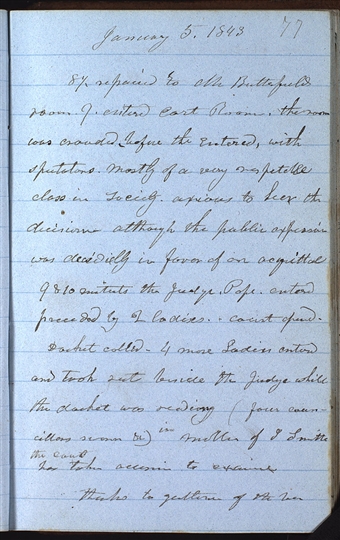 January 5. 1843 77
8½ repaired to Mr Butterfields
room 9. entered court Room. the room
was crowded before the entered, with
spectators. mostly of a very respectible
class in Society. axious to hear the
decision although the public expression
was decididly in favor of an acquittal
9 & 10 minutes the Judge. Pope. entered
preceeded by 2 ladies. court opend.
Docket called - 4 more Ladies enterd
and took seat beside the Judge while
the docket was reading (four coun-
cillors room &c) in matter of J Smith
the court
has taken occasion to examine
thanks to gentlemen of the bar